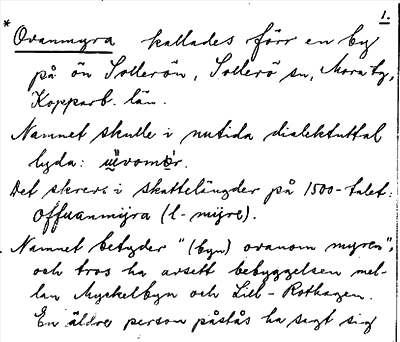 1.
* Ovanmyra kallades förr en by
på ön Sollerön, Sollerö sn, Mora tg,
Kopparb. län.
Namnet skulle i nutida dialektuttal
lyda:
Det skrevs i skattelängder på 1500-talet:
Offuanmÿra (l- mÿre).
Namnet betyder "(byn) ovanom myren",
och tros ha avsett bebyggelsen mel-
lan Myckelbyn och Lill-Rothagen.
En äldre person påstås ha sagt sig